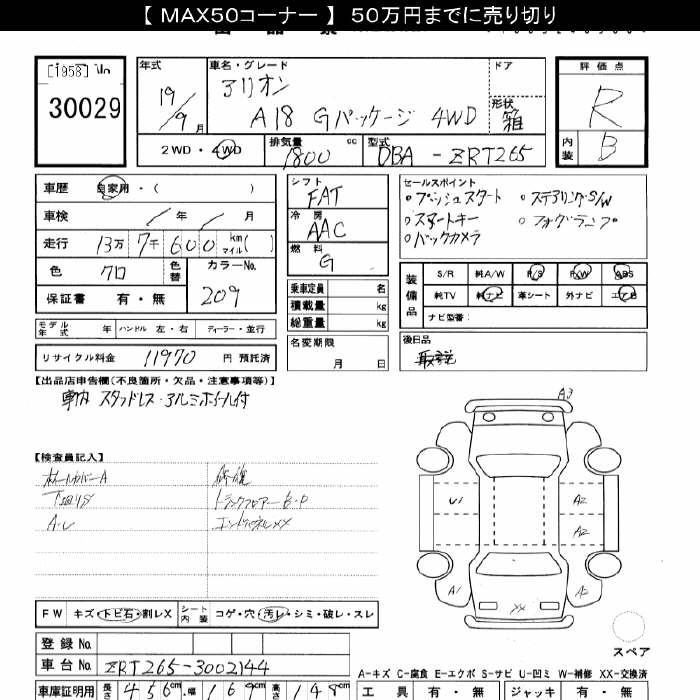 【 MAX50コーナー 】 50万円までに売り切り
[1958]
30029
年式
19/9月
車名・グレード
アリオン
A18 Gパッケージ 4WD
ドア
形状
箱
2WD・4WD
排気量
1800 cc
型式
DBA-ZRT265
評価点
R
内装
B
車歴 自家用・( )
車検 年 月
走行 13万7千600 km マイル( )
色 クロ
色替
カラーNo.
209
保証書 有・無
モデル年式 年 ハンドル 左・右 ディーラー・並行
リサイクル料金 11970 円 預託済
シフト
FAT
冷房
AAC
燃料
G
乗車定員 名
積載量 kg
総重量 kg
名変期限
月 日
セールスポイント
○プッシュスタート ○ステアリングS/W
○スマートキー ○フォグランプ
○バックカメラ
装備品
S/R 純A/W P/S P/W ABS
純TV 純ナビ 革シート 外ナビ エアB
ナビ型番:
後日品
取説
【出品店申告欄(不良箇所・欠品・注意事項等)】
車内 スタッドレス・アルミホイール付
【検査員記入】
ホイールカバーA 修複
下回りS トランクフロアーB・P
A・U エンドパネルXX
A3
U1
A2
A2
A1
A2
XX
スペア
FW キズ・トビ石・割レX
シート内装 コゲ・穴・汚レ・シミ・破レ・スレ
登録 No.
車台 No. ZRT265-3002144
車庫証明用 長さ 456cm 幅 169cm 高さ 148cm
A-キズ C-腐食 E-エクボ S-サビ U-凹ミ W-補修 XX-交換済
工具 有・無 ジャッキ 有・無